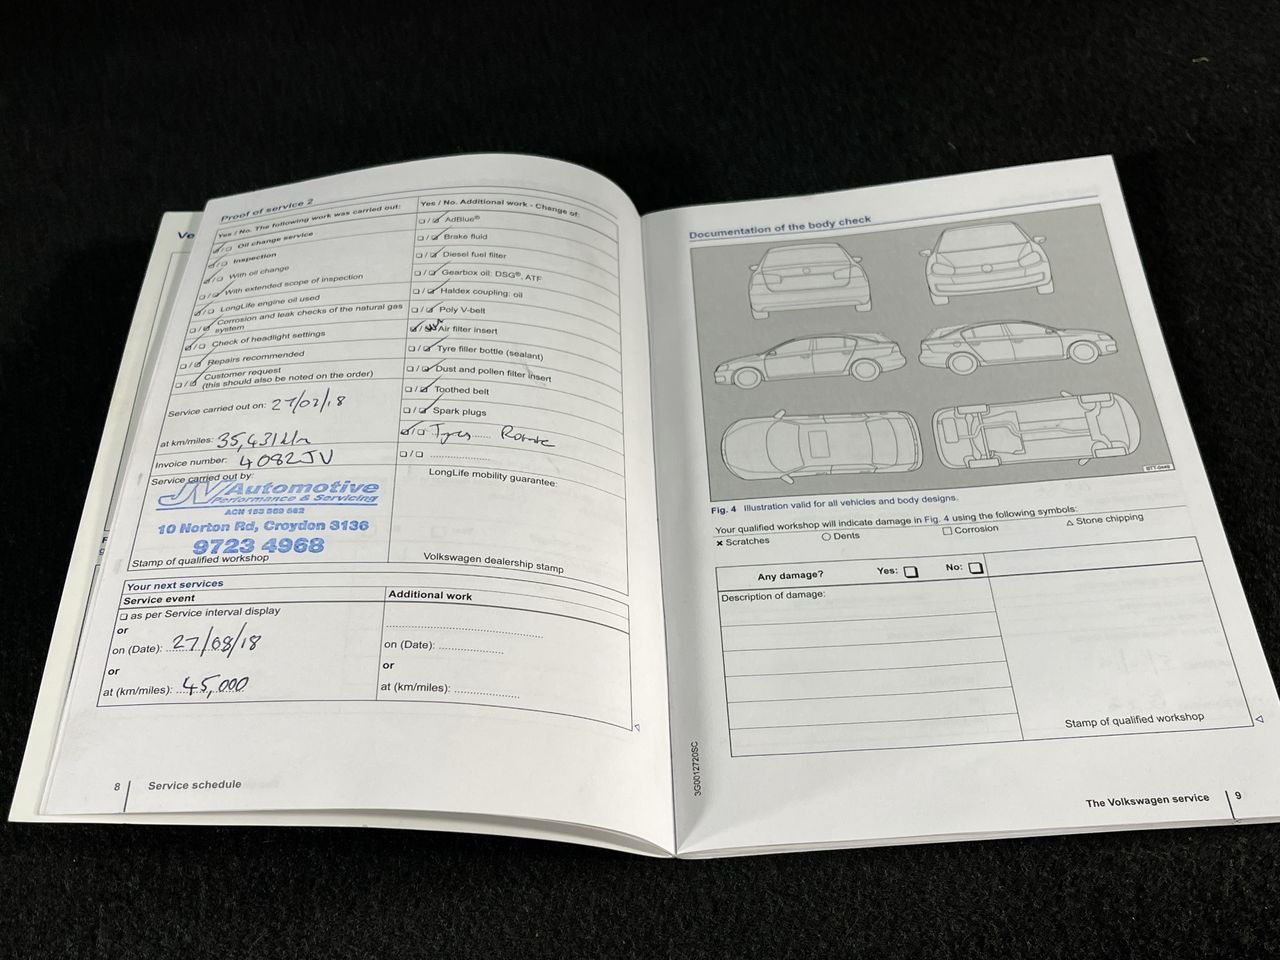 Ve
Proof of service 2
Yes / No. The following work was carried out:
Oil change service
Inspection
With oil change
With extended scope of inspection
LongLife engine oil used
Corrosion and leak checks of the natural gas
system
Check of headlight settings
Repairs recommended
Customer request
(this should also be noted on the order)
Service carried out on: 27/02/18
at km/miles: 35,431
Invoice number: 4082JV
Service carried out by:
JV Automotive
Performance & Servicing
ACN
10 Norton Rd, Croydon 3136
9723 4968
Stamp of qualified workshop
Yes / No. Additional work - Change of:
AdBlue®
Brake fluid
Diesel fuel filter
Gearbox oil: DSG®, ATF
Haldex coupling: oil
Poly V-belt
Air filter insert
Tyre filler bottle (sealant)
Dust and pollen filter insert
Toothed belt
Spark plugs
LongLife mobility guarantee:
Volkswagen dealership stamp
Your next services
Service event
as per Service interval display
or
on (Date): 27/08/18
or
at (km/miles): 45,000
Additional work
on (Date):
or
at (km/miles):
8 Service schedule
Documentation of the body check
Fig. 4 Illustration valid for all vehicles and body designs.
Your qualified workshop will indicate damage in Fig. 4 using the following symbols:
× Scratches
○ Dents
□ Corrosion
△ Stone chipping
Any damage? Yes: No:
Description of damage:
Stamp of qualified workshop
3G0012720SC
The Volkswagen service 9